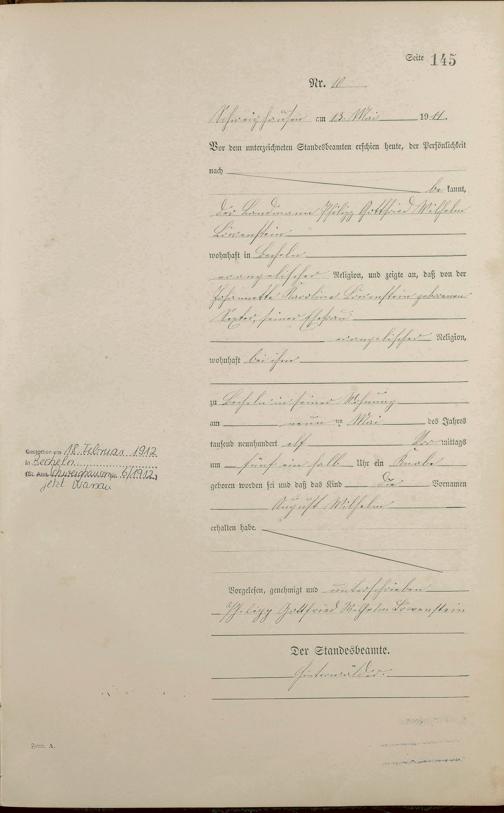 Seite 145
Nr. 10
Schweighausen am 13. Mai 1911.
Vor dem unterzeichneten Standesbeamten erschien heute, der Persönlichkeit
nach be kannt,
der Landmann Philipp Gottfried Wilhelm
Löwenstein
wohnhaft in Becheln
evangelischer Religion, und zeigte an, daß von der
Johannette Karoline Löwenstein geborenen
seiner Ehefrau
evangelischer Religion,
wohnhaft bei ihm
zu Becheln in seiner Wohnung
am neun ten Mai des Jahres
tausend neunhundert elf Vor mittags
um fünf ein halb Uhr ein Knabe
geboren worden sei und daß das Kind die Vornamen
August Wilhelm
erhalten habe.
Vorgelesen, genehmigt und unterschrieben
Philipp Gottfried Wilhelm Löwenstein
Der Standesbeamte.
Gestorben am 18. Februar 1912
in Becheln
(St. Amt Schweighausen Nr. 6/1912)
jetzt Nassau
Form. A.